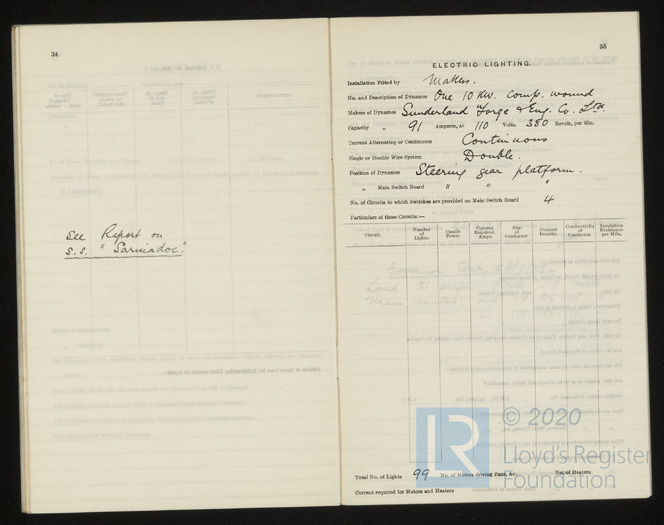 34
See Report on
S.S. "Sarniadoc".
35
ELECTRIC LIGHTING.
Installation Fitted by Makers.
No. and Description of Dynamos One 10 KW. Comp. wound
Makers of Dynamos Sunderland Forge & Eng. Co. Ltd.
Capacity " 91 Amperes, at 110 Volts, 380 Revols. per Min.
Current Alternating or Continuous Continuous
Single or Double Wire System Double.
Position of Dynamos Steering gear platform.
" Main Switch Board " " "
No. of Circuits to which Switches are provided on Main Switch Board 4
Particulars of these Circuits:—
Circuit. Number of Lights. Candle Power. Current Required. Amps. Size of Conductor. Current Density. Conductivity of Conductor. Insulation Resistance per Mile.
Total No. of Lights 99 No. of Motors driving Fans, &c. No. of Heaters
Current required for Motors and Heaters
LR © 2020
Lloyd's Register
Foundation